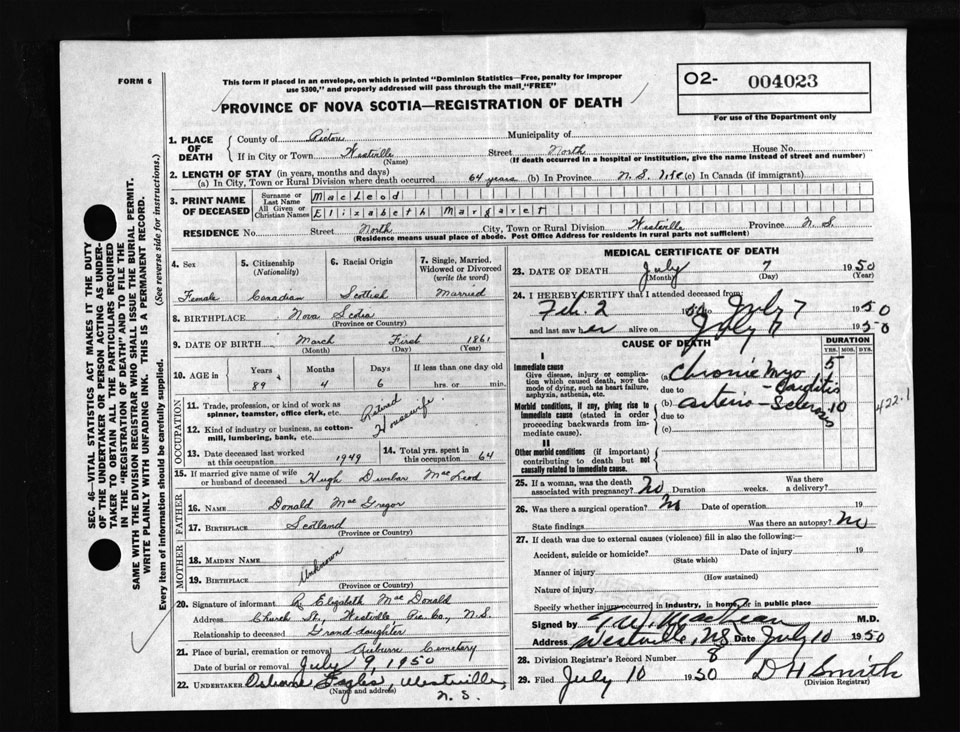 FORM 6
This form if placed in an envelope, on which is printed "Dominion Statistics—Free, penalty for improper
use $300," and properly addressed will pass through the mail "FREE"
PROVINCE OF NOVA SCOTIA—REGISTRATION OF DEATH
O2- 004023
For use of the Department only
SEC. 46—VITAL STATISTICS ACT MAKES IT THE DUTY
OF THE UNDERTAKER OR PERSON ACTING AS UNDER-
TAKER TO OBTAIN ALL THE PARTICULARS REQUIRED
IN THE "REGISTRATION OF DEATH" AND TO FILE THE
SAME WITH THE DIVISION REGISTRAR WHO SHALL ISSUE THE BURIAL PERMIT.
WRITE PLAINLY WITH UNFADING INK. THIS IS A PERMANENT RECORD.
Every item of information should be carefully supplied. (See reverse side for instructions.)
1. PLACE OF DEATH
County of Pictou Municipality of
If in City or Town Westville Street North House No.
(Name) (If death occurred in a hospital or institution, give the name instead of street and number)
2. LENGTH OF STAY (in years, months and days)
(a) In City, Town or Rural Division where death occurred 64 years (b) In Province N.S. life (c) In Canada (if immigrant)
3. PRINT NAME OF DECEASED
Surname or Last Name MacLeod
All Given or Christian Names Elizabeth Margaret
RESIDENCE No. Street North City, Town or Rural Division Westville Province N.S.
(Residence means usual place of abode. Post Office Address for residents in rural parts not sufficient)
4. Sex Female
5. Citizenship (Nationality) Canadian
6. Racial Origin Scottish
7. Single, Married, Widowed or Divorced (write the word) Married
8. BIRTHPLACE Nova Scotia
(Province or Country)
9. DATE OF BIRTH March First 1861
(Month) (Day) (Year)
10. AGE in Years Months Days If less than one day old
89 4 6 hrs. or min.
OCCUPATION
11. Trade, profession, or kind of work as spinner, teamster, office clerk, etc. Retired
12. Kind of industry or business, as cotton-mill, lumbering, bank, etc. Housewife
13. Date deceased last worked at this occupation 1949
14. Total yrs. spent in this occupation 64
15. If married give name of wife or husband of deceased Hugh Dunbar MacLeod
FATHER
16. NAME Donald MacGregor
17. BIRTHPLACE Scotland
(Province or Country)
MOTHER
18. MAIDEN NAME
Unknown
19. BIRTHPLACE
(Province or Country)
20. Signature of informant R. Elizabeth MacDonald
Address Church St., Westville Pic. Co., N.S.
Relationship to deceased Grand-daughter
21. Place of burial, cremation or removal Auburn Cemetery
Date of burial or removal July 9, 1950
22. UNDERTAKER Westville, N.S.
(Name and address)
MEDICAL CERTIFICATE OF DEATH
23. DATE OF DEATH July 7 1950
(Month) (Day) (Year)
24. I HEREBY CERTIFY that I attended deceased from:
Feb. 2 1950 July 7 1950
and last saw her alive on July 7 1950
CAUSE OF DEATH DURATION
YRS. MOS. DYS.
I
Immediate cause
Give disease, injury or complication which caused death, NOT the mode of dying, such as heart failure, asphyxia, asthenia, etc.
(a) Chronic Myo-Carditis 5
due to
Morbid conditions, if any, giving rise to immediate cause (stated in order proceeding backwards from immediate cause).
(b) Arterio-Sclerosis 10
due to
(c)
422.1
II
Other morbid conditions (if important) contributing to death but not causally related to immediate cause.
25. If a woman, was the death associated with pregnancy? No Duration weeks. Was there a delivery?
26. Was there a surgical operation? No Date of operation 19
State findings Was there an autopsy? No
27. If death was due to external causes (violence) fill in also the following:—
Accident, suicide or homicide? Date of injury 19
(State which)
Manner of injury
(How sustained)
Nature of injury
Specify whether injury occurred in industry, in home, or in public place
Signed by MacLean M.D.
Address Westville, N.S. Date July 10 1950
28. Division Registrar's Record Number 8
29. Filed July 10 1950 D H Smith
(Division Registrar)